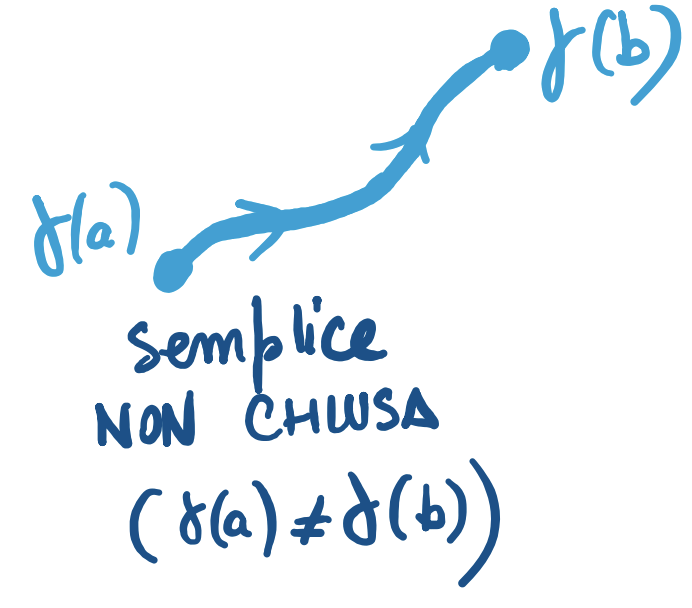 γ(b)
γ(a)
semplice
NON CHIUSA
(γ(a) ≠ γ(b))